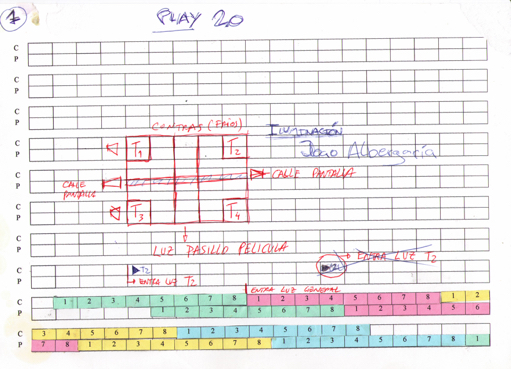 1 PLAY 20
C
P
C
P
C
P
CONTRAS (FRÍOS)
ILUMINACIÓN
C
P
T1 T2 João Albergaria
C
P
CALLE PANTALLA CALLE PANTALLA
C
P
T3 T4
C
P
LUZ PASILLO PELICULA
C
P
T2 ENTRA LUZ T2
ENTRA LUZ T2 ENTRA LUZ GENERAL
C 1 2 3 4 5 6 7 8 1 2 3 4 5 6 7 8 1 2
P 1 2 3 4 5 6 7 8 1 2 3 4 5 6 7 8
C 3 4 5 6 7 8 1 2 3 4 5 6 7 8
P 7 8 1 2 3 4 5 6 7 8 1 2 3 4 5 6 7 8 1